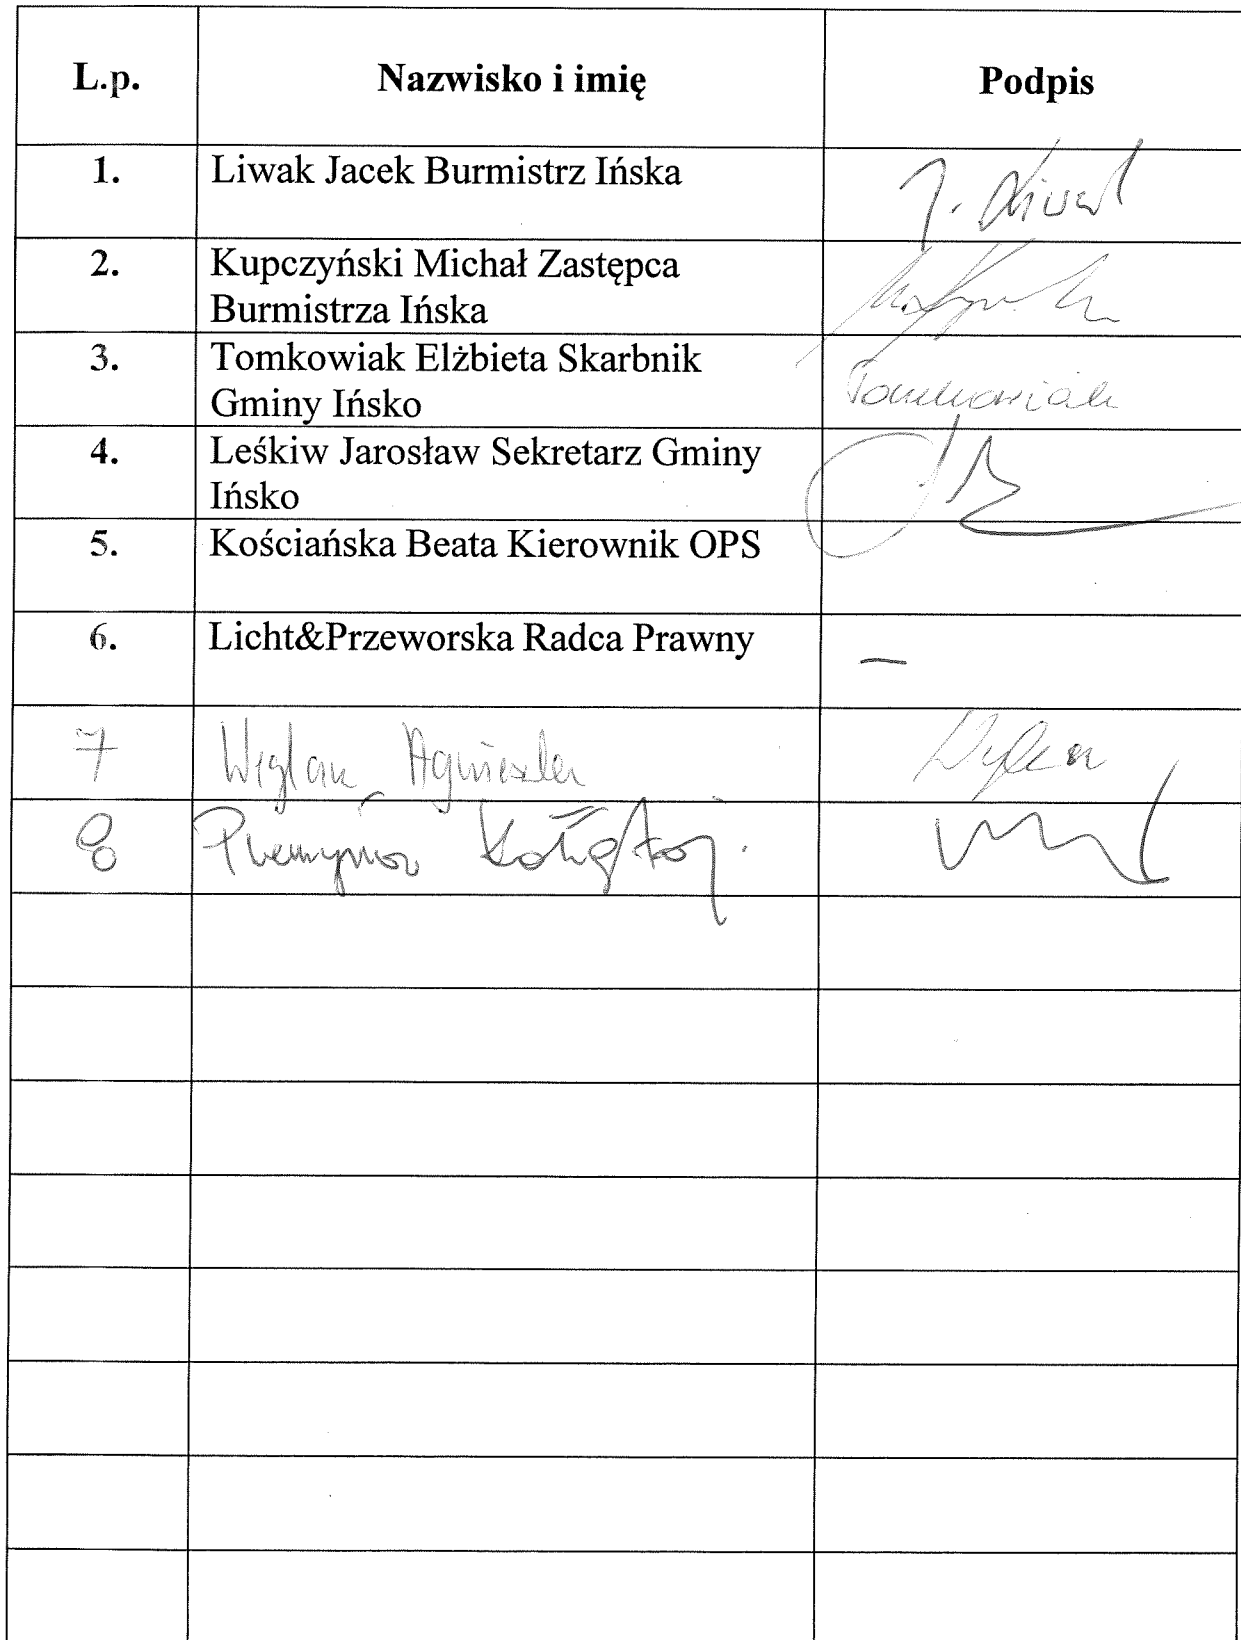 L.p. Nazwisko i imię Podpis
1. Liwak Jacek Burmistrz Ińska J. Liwak
2. Kupczyński Michał Zastępca
Burmistrza Ińska
3. Tomkowiak Elżbieta Skarbnik Tomkowiak
Gminy Ińsko
4. Leśkiw Jarosław Sekretarz Gminy
Ińsko
5. Kościańska Beata Kierownik OPS
6. Licht&Przeworska Radca Prawny –
7 Agnieszka
8 Przemysław Kołłątaj